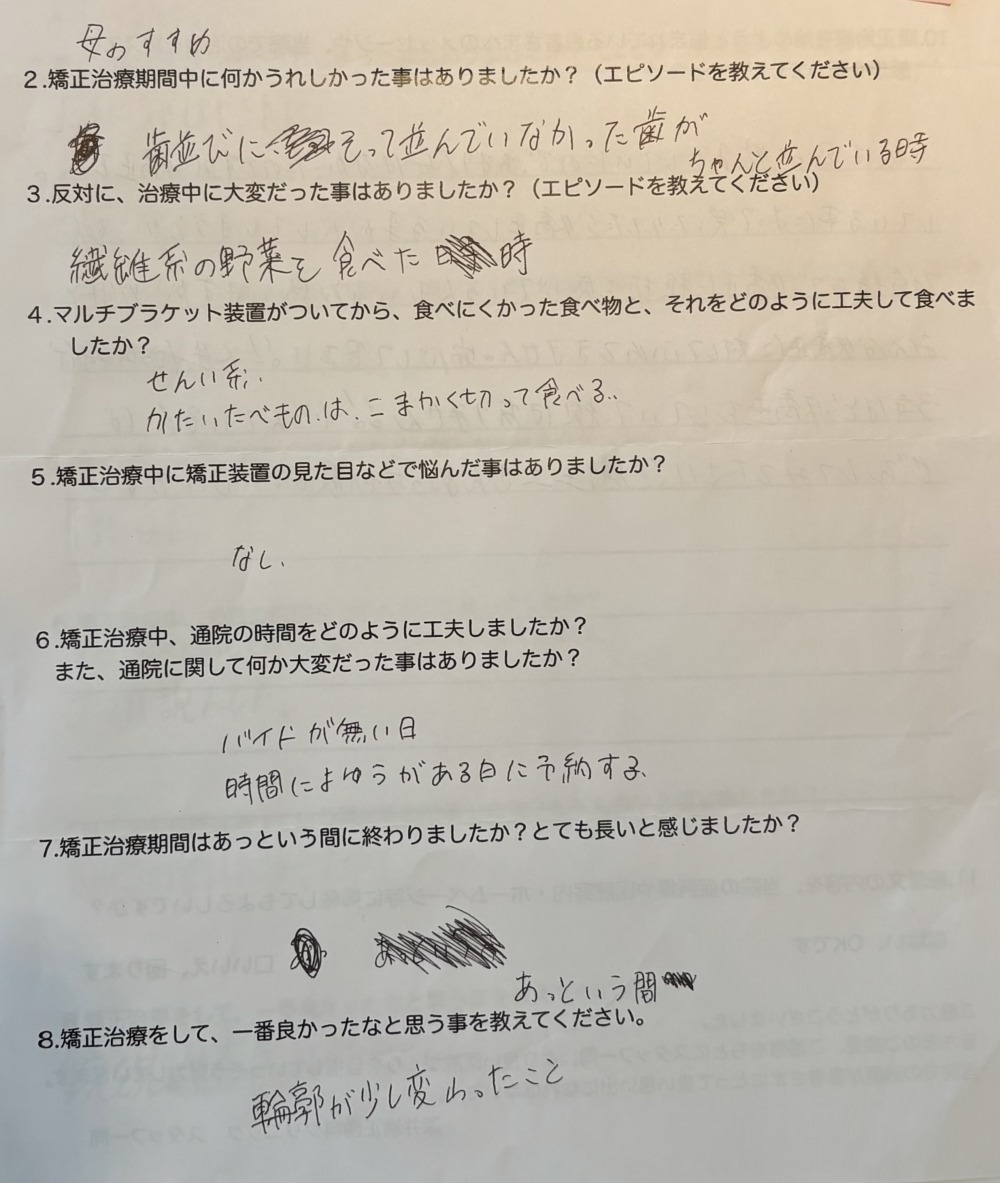 母のすすめ
2.矯正治療期間中に何かうれしかった事はありましたか？（エピソードを教えてください）
歯並びにそって並んでいなかった歯が
ちゃんと並んでいる時
3.反対に、治療中に大変だった事はありましたか？（エピソードを教えてください）
繊維系の野菜を食べた時
4.マルチブラケット装置がついてから、食べにくかった食べ物と、それをどのように工夫して食べま
したか？
せんい系.
かたいたべもの.は、こまかく切って食べる..
5.矯正治療中に矯正装置の見た目などで悩んだ事はありましたか？
なし.
6.矯正治療中、通院の時間をどのように工夫しましたか？
また、通院に関して何か大変だった事はありましたか？
バイトが無い日
時間によゆうがある日に予約する、
7.矯正治療期間はあっという間に終わりましたか？とても長いと感じましたか？
あっという間
8.矯正治療をして、一番良かったなと思う事を教えてください。
輪郭が少し変わったこと